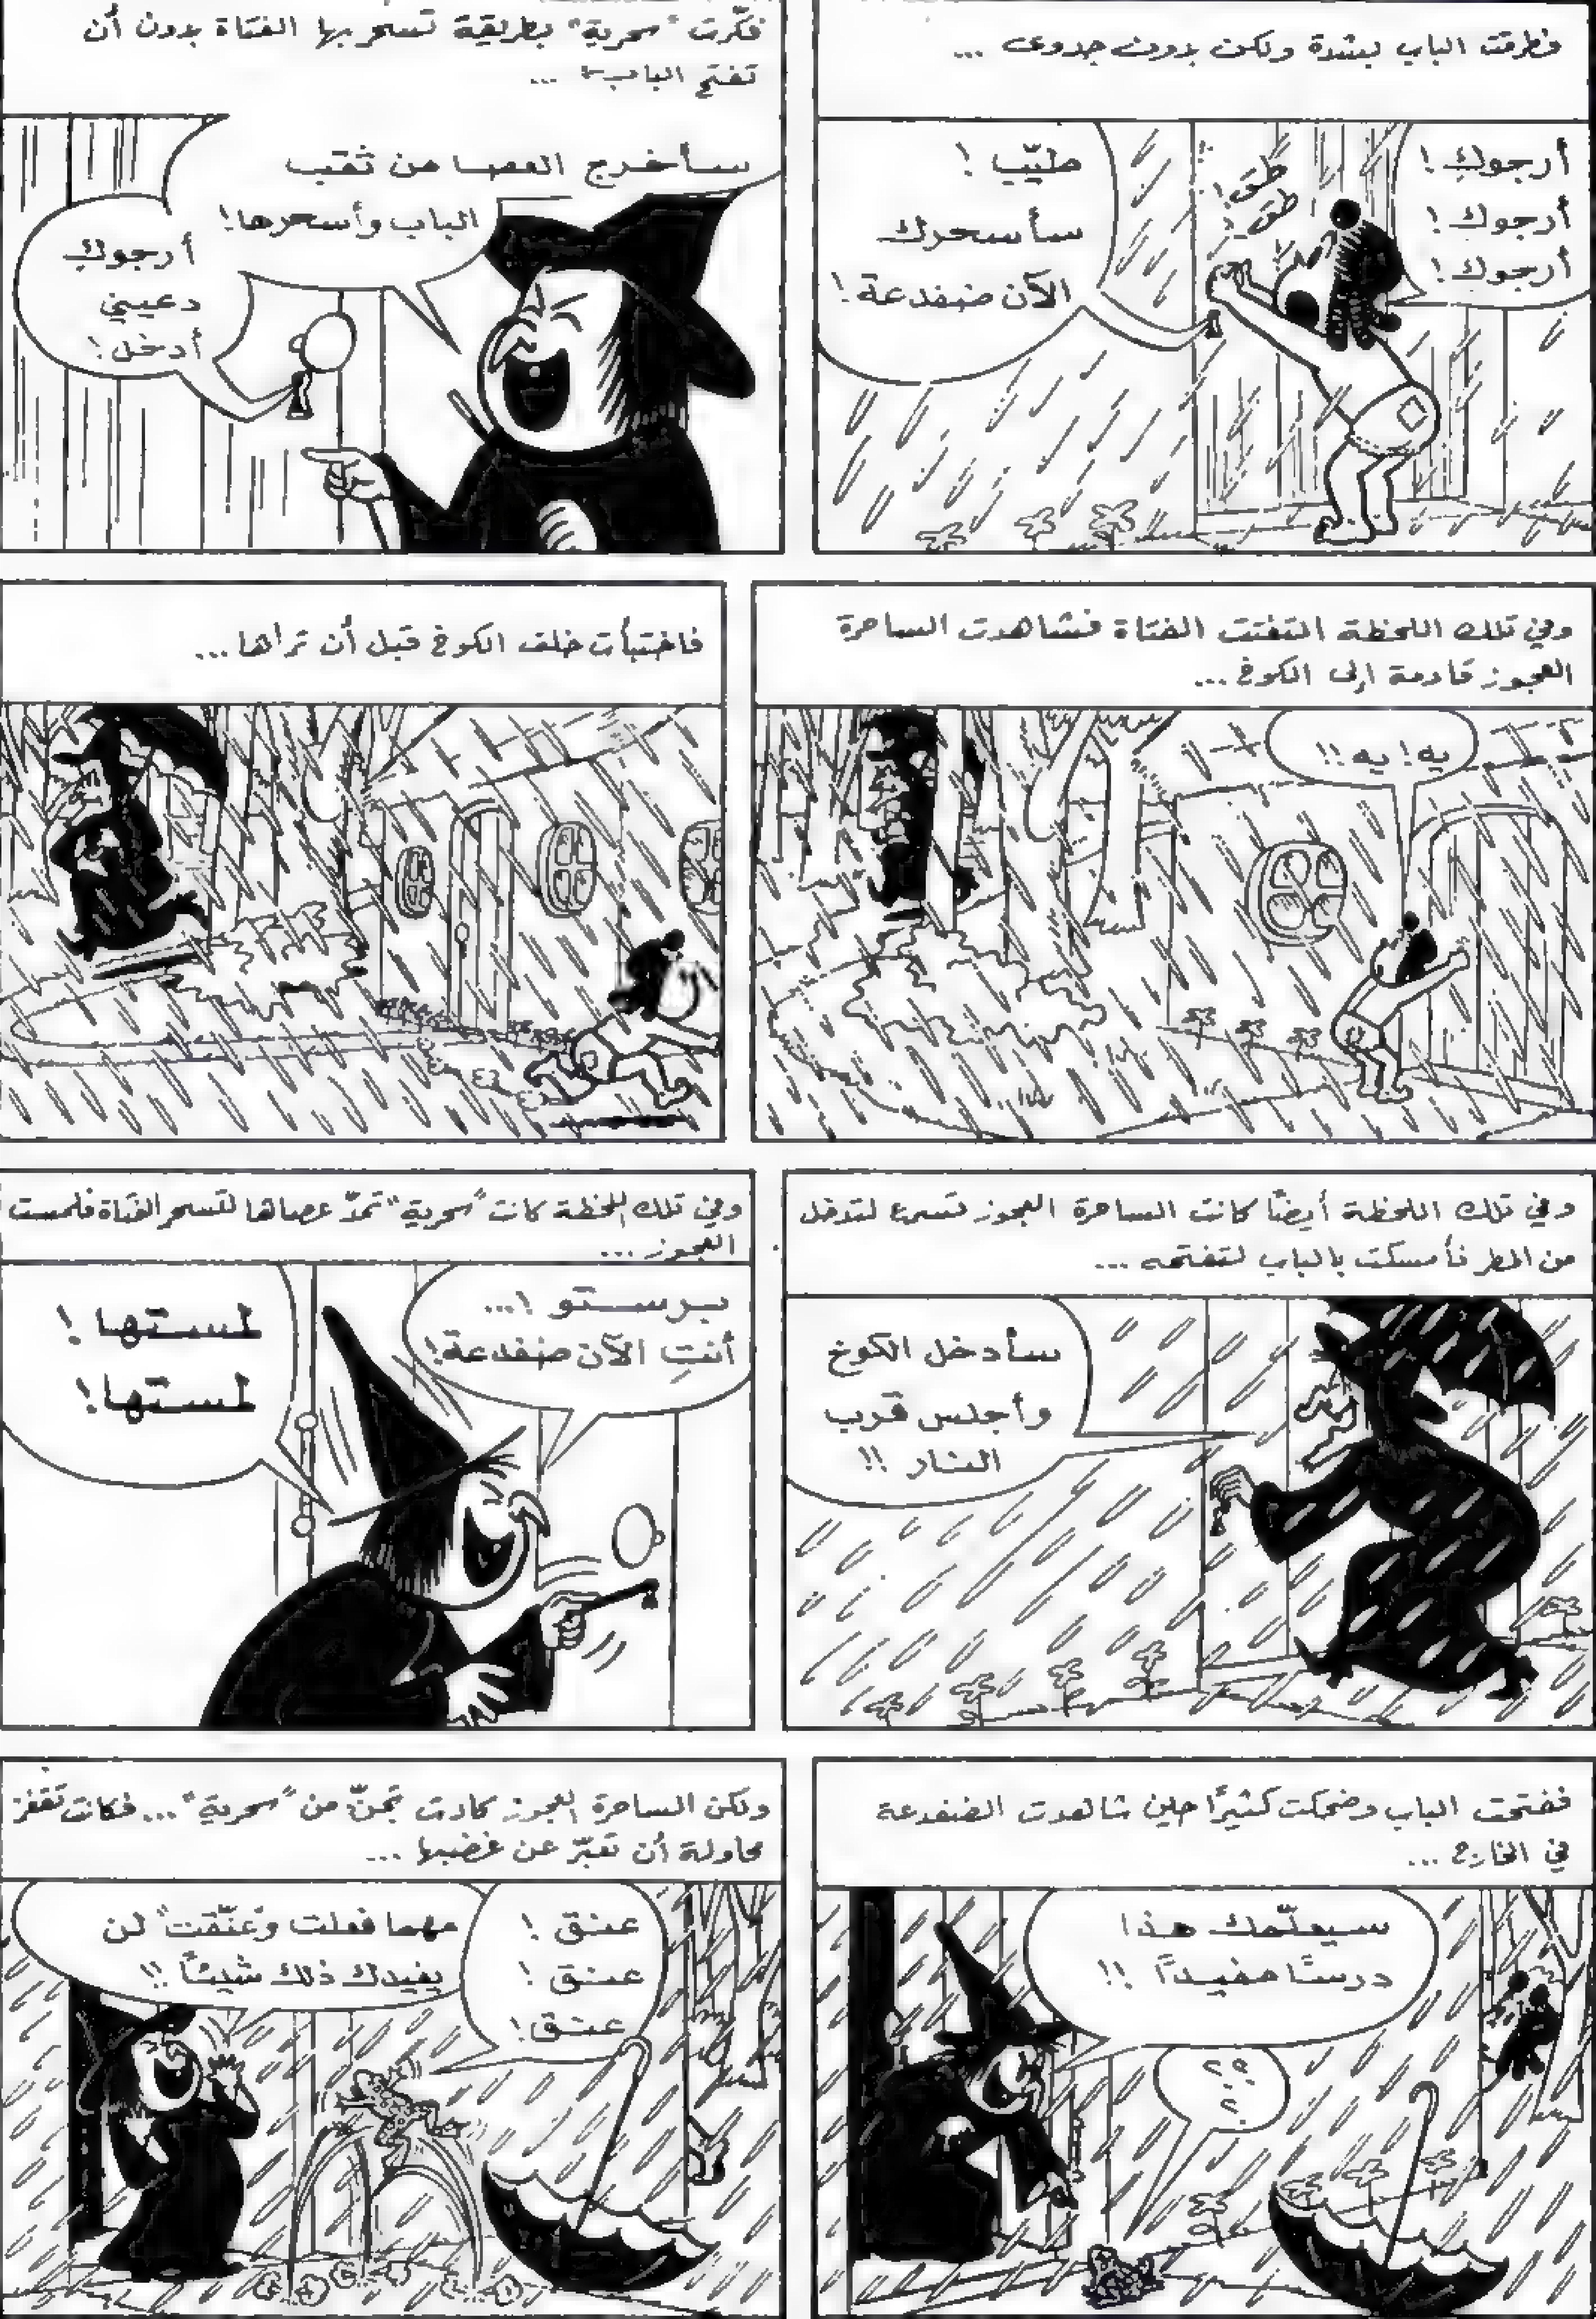 فطرقت الباب بشدة ولكن بدون جدوى ...
أرجوكِ!
أرجوكِ!
أرجوكِ!
طق!
طق!
طيّب!
سأسحرك
الآن ضفدعة!
فكّرت "سحرية" بطريقة تسحر بها الفتاة بدون أن
تفتح الباب ...
سأخرج العصا من ثقب
الباب وأسحرها!
أرجوكِ
دعيني
أدخل!
وفي تلك اللحظة التفتت الفتاة فشاهدت الساحرة
العجوز قادمة إلى الكوخ ...
يه! يه!!
فاختبأت خلف الكوخ قبل أن تراها ...
وفي تلك اللحظة أيضًا كانت الساحرة العجوز تسرع لتدخل
من المطر فأمسكت بالباب لتفتحه ...
سأدخل الكوخ
وأجلس قرب
النار!!
وفي تلك اللحظة كانت "سحرية" تمدّ عصاها لتسحر الفتاة فلمست
العجوز ...
برستو!...
أنتِ الآن ضفدعة!
لمستها!
لمستها!
ففتحت الباب وضحكت كثيرًا حين شاهدت الضفدعة
في الخارج ...
سيعلّمك هذا
درسًا مفيدًا!!
؟؟
؟
ولكن الساحرة العجوز كادت تجنّ من "سحرية" ... فكانت تقفز
محاولة أن تعبّر عن غضبها ...
عنق!
عنق!
عنق!
مهما فعلت و"عنّقت" لن
يفيدك ذلك شيئًا!!